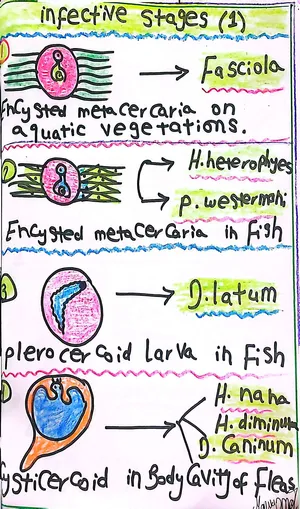 infective stages (1)
1
Fasciola
Encysted metacercaria on
aquatic vegetations.
2
H.heterophyes
P. westermani
Encysted metacercaria in Fish
3
D.latum
plerocercoid larva in fish
H. nana
H. diminuta
D. Caninum
Cysticercoid in Body Cavity of Fleas